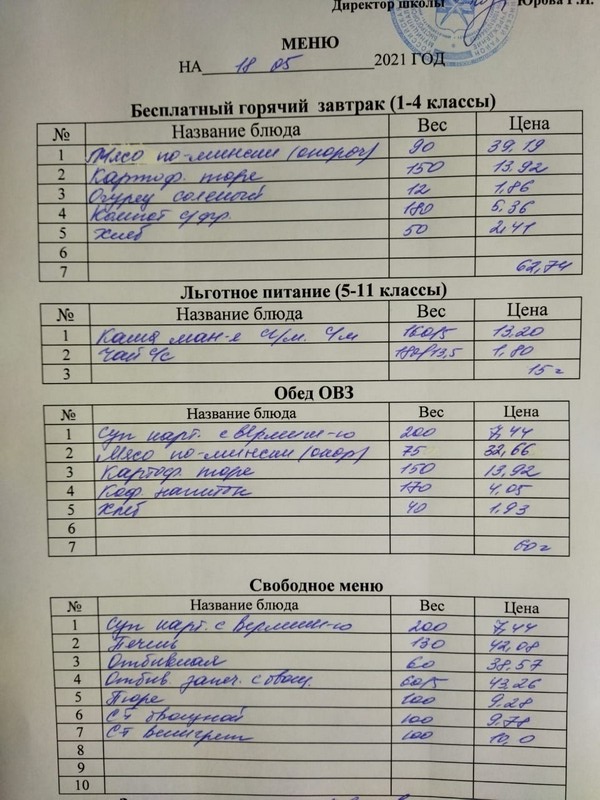 Директор школы Юрова Г.И.
МЕНЮ
НА 18 05 2021 ГОД
Бесплатный горячий завтрак (1-4 классы)
№ Название блюда Вес Цена
1 Мясо по-мински (окороч) 90 39,19
2 Картоф. пюре 150 13,92
3 Огурец соленый 12 1,86
4 Компот с/фр. 180 5,36
5 Хлеб 50 2,41
6
7 62,74
Льготное питание (5-11 классы)
№ Название блюда Вес Цена
1 Каша ман-я с/м. 160/5 13,20
2 Чай с/с 180/13,5 1,80
3 15
Обед ОВЗ
№ Название блюда Вес Цена
1 Суп карт. с вермиш-ю 200 7,44
2 Мясо по-мински (окор) 75 32,66
3 Картоф. пюре 150 13,92
4 Коф. напиток 170 4,05
5 Хлеб 40 1,93
6
7 60
Свободное меню
№ Название блюда Вес Цена
1 Суп карт. с вермиш-ю 200 7,44
2 Печень 130 42,08
3 Отбивная 60 38,57
4 Отбив. запеч. с овощ. 60/5 43,26
5 Пюре 100 9,28
6 СТ овощной 100 9,78
7 СТ винигрет 100 10,0
8
9
10